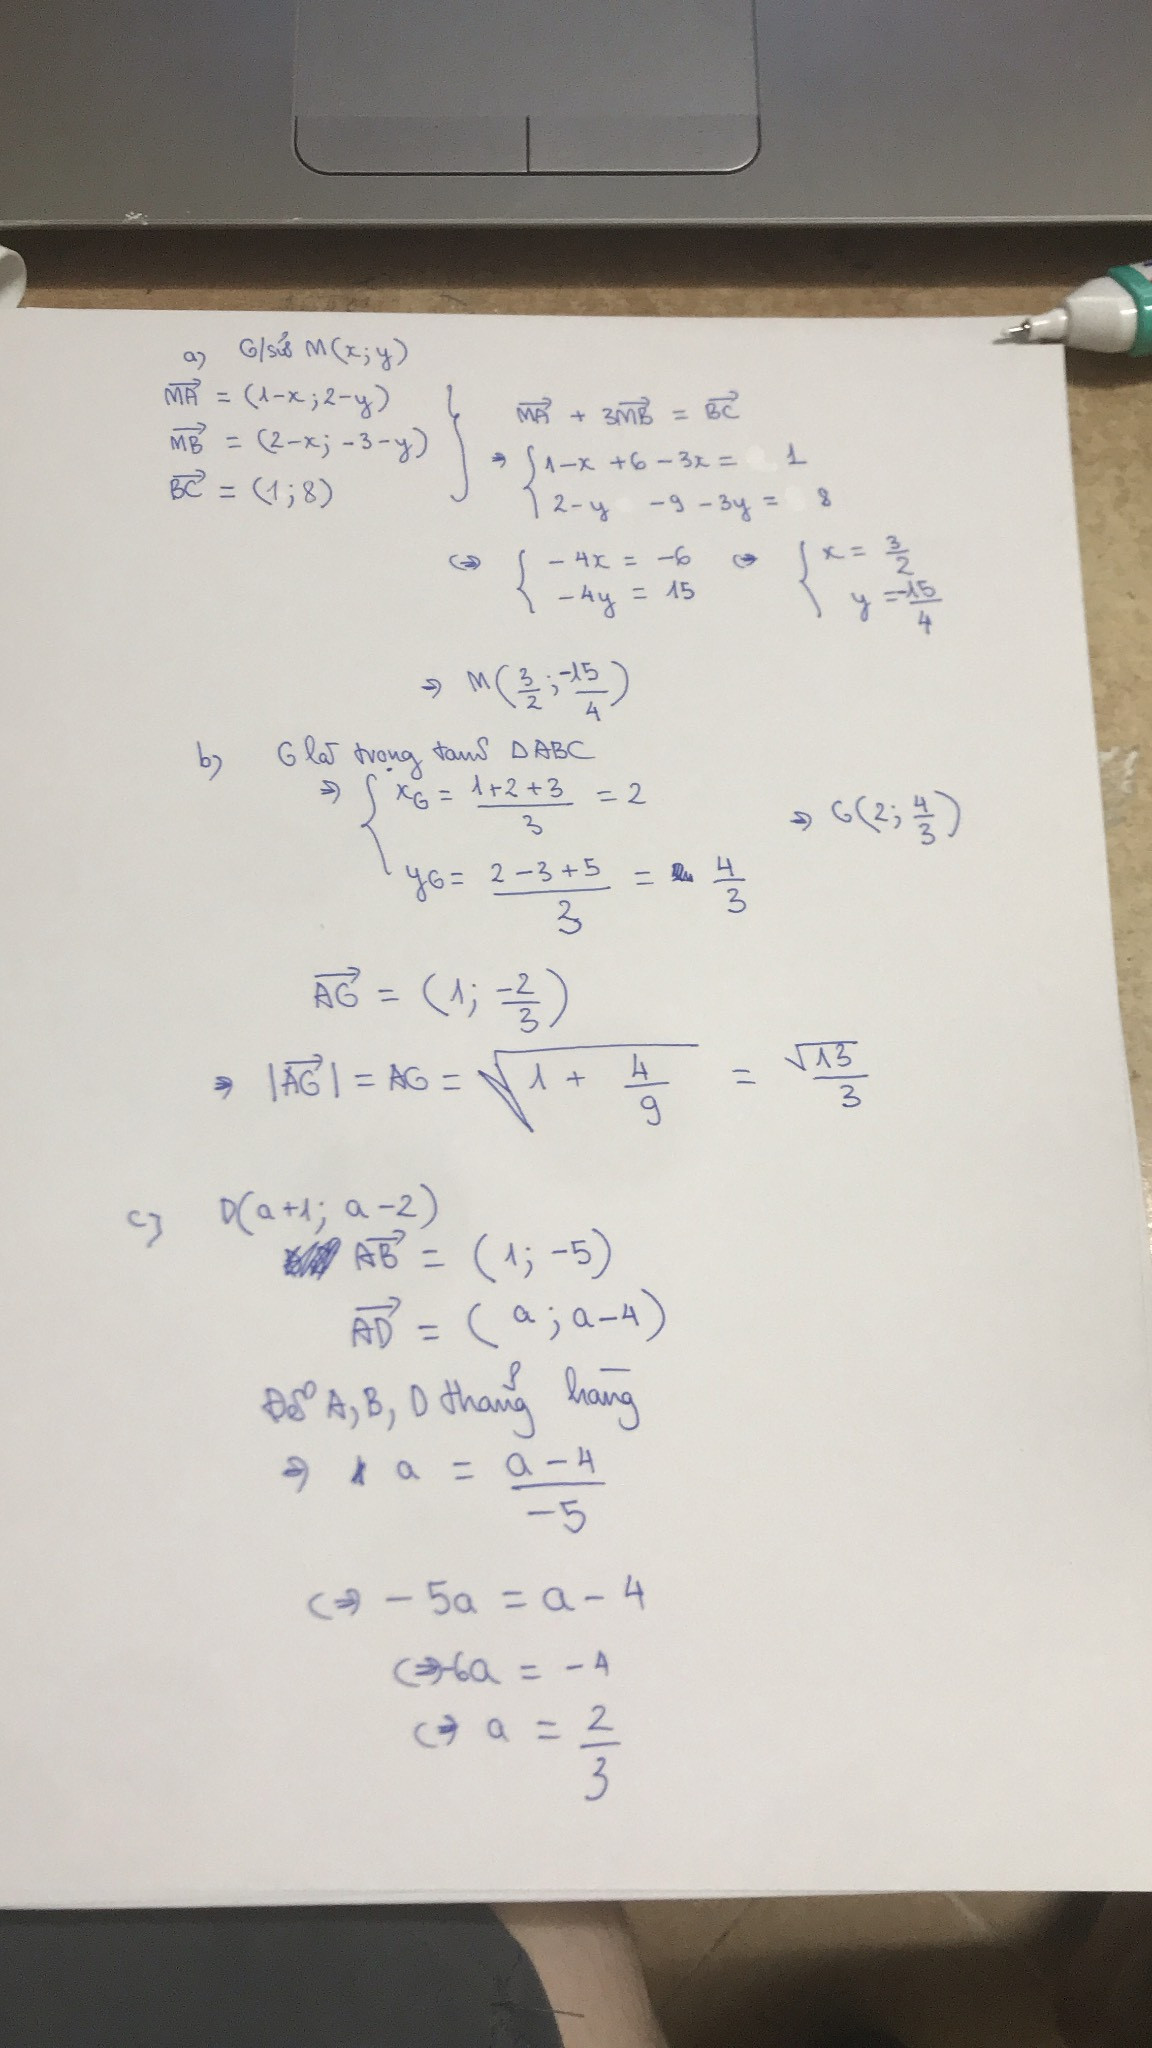 a) G/sử M(x;y)
MA→ = (1-x;2-y)
MB→ = (2-x; -3-y)
BC→ = (1;8)
MA→ + 3MB→ = BC→
⇒ { 1-x +6-3x = 1
2-y -9-3y = 8
⇔ { -4x = -6
-4y = 15
⇔ { x = 3/2
y = -15/4
⇒ M(3/2; -15/4)
b) G là trọng tâm ΔABC
⇒ { xG = (1+2+3)/3 = 2
yG = (2-3+5)/3 = 4/3
⇒ G(2; 4/3)
AG→ = (1; -2/3)
⇒ |AG→| = AG = √(1 + 4/9) = √13/3
c) D(a+1; a-2)
AB→ = (1; -5)
AD→ = (a; a-4)
Để A, B, D thẳng hàng
⇒ a = (a-4)/-5
⇔ -5a = a-4
⇔ -6a = -4
⇔ a = 2/3